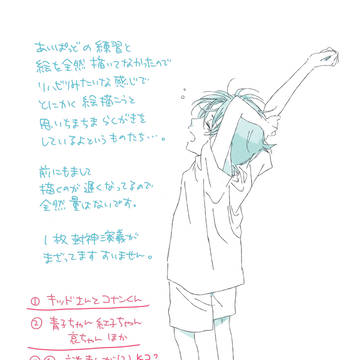 あいぱっどの練習と
絵を全然描いてなかったので
リハビリみたいな感じで
とにかく絵描こうと
思いちまちまらくがきを
しているよというものたち…。
前にもまして
描くのが遅くなってるので
全然量はないです。
1枚封神演義が
まざってますすいません。
① キッドさんとコナンくん
② 青子ちゃん 紅子ちゃん
哀ちゃん ほか